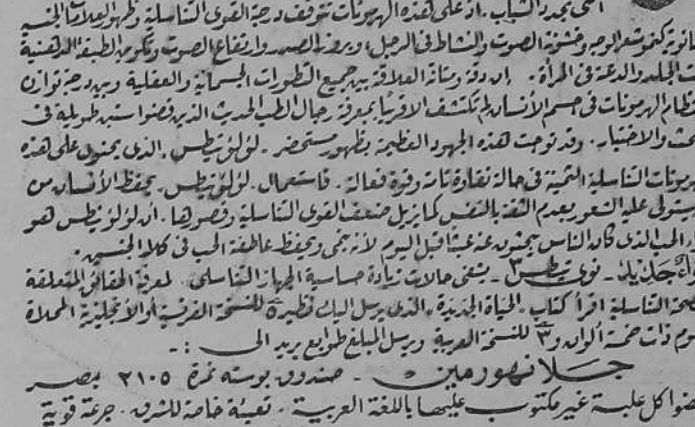 التى تجدد الشباب. اذ على هذه الهرمونات تتوقف درجة القوى التناسلية وظهور العلامات الجنسية
الثانوية كنمو شعر الوجه وخشونة الصوت والنشاط فى الرجل، وبروز الصدر وارتفاع الصوت وتكوين الطبقة الدهنية
تحت الجلد والدعة فى المرأة. ان دقة ومتانة العلاقة بين جميع التطورات الجسمانية والعقلية وبين درجة توازن
نظام الهرمونات فى جسم الأنسان لم تكتشف الا قريبا بمعرفة رجال الطب الحديث الذين قضوا سنين طويلة فى
البحث والاختبار. وقد توجت هذه الجهود العظيمة بظهور مستحضر - لؤلؤ تيطس. الذى يحتوى على هذه
الهرمونات التناسلية الثمينة فى حالة نقاوة تامة وقوة فعالة. فاستعمال. لؤلؤ تيطس. يحفظ الأنسان من
يستولى عليه الشعور بعدم الثقة بالنفس كما يزيل ضعف القوى التناسلية وقصورها. ان لؤلؤ تيطس هو
الحب الذى كان الناس يبحثون عنه عبثا قبل اليوم لأنه يحمى ويحفظ عاطفة الحب فى كلا الجنسين.
جديد - نوى تيطس ٣ - يشفى حالات زيادة حساسية الجهاز التناسلى. لمعرفة الحقائق المتعلقة
التناسلية اقرأ كتاب. الحياة الجديدة. الذى يرسل اليك نظير ٥ للنسخة الفرنسية أو الانجليزية المحلاة
ذات خمسة ألوان و ٣ للنسخة العربية ويرسل المبلغ طوابع بريد الى :-
جلانهورمين - صندوق بوسته نمرة ٢١٠٥ بمصر
كل علبة غير مكتوب عليها باللغة العربية. تعبئة خاصة للشرق. جرعة قوية